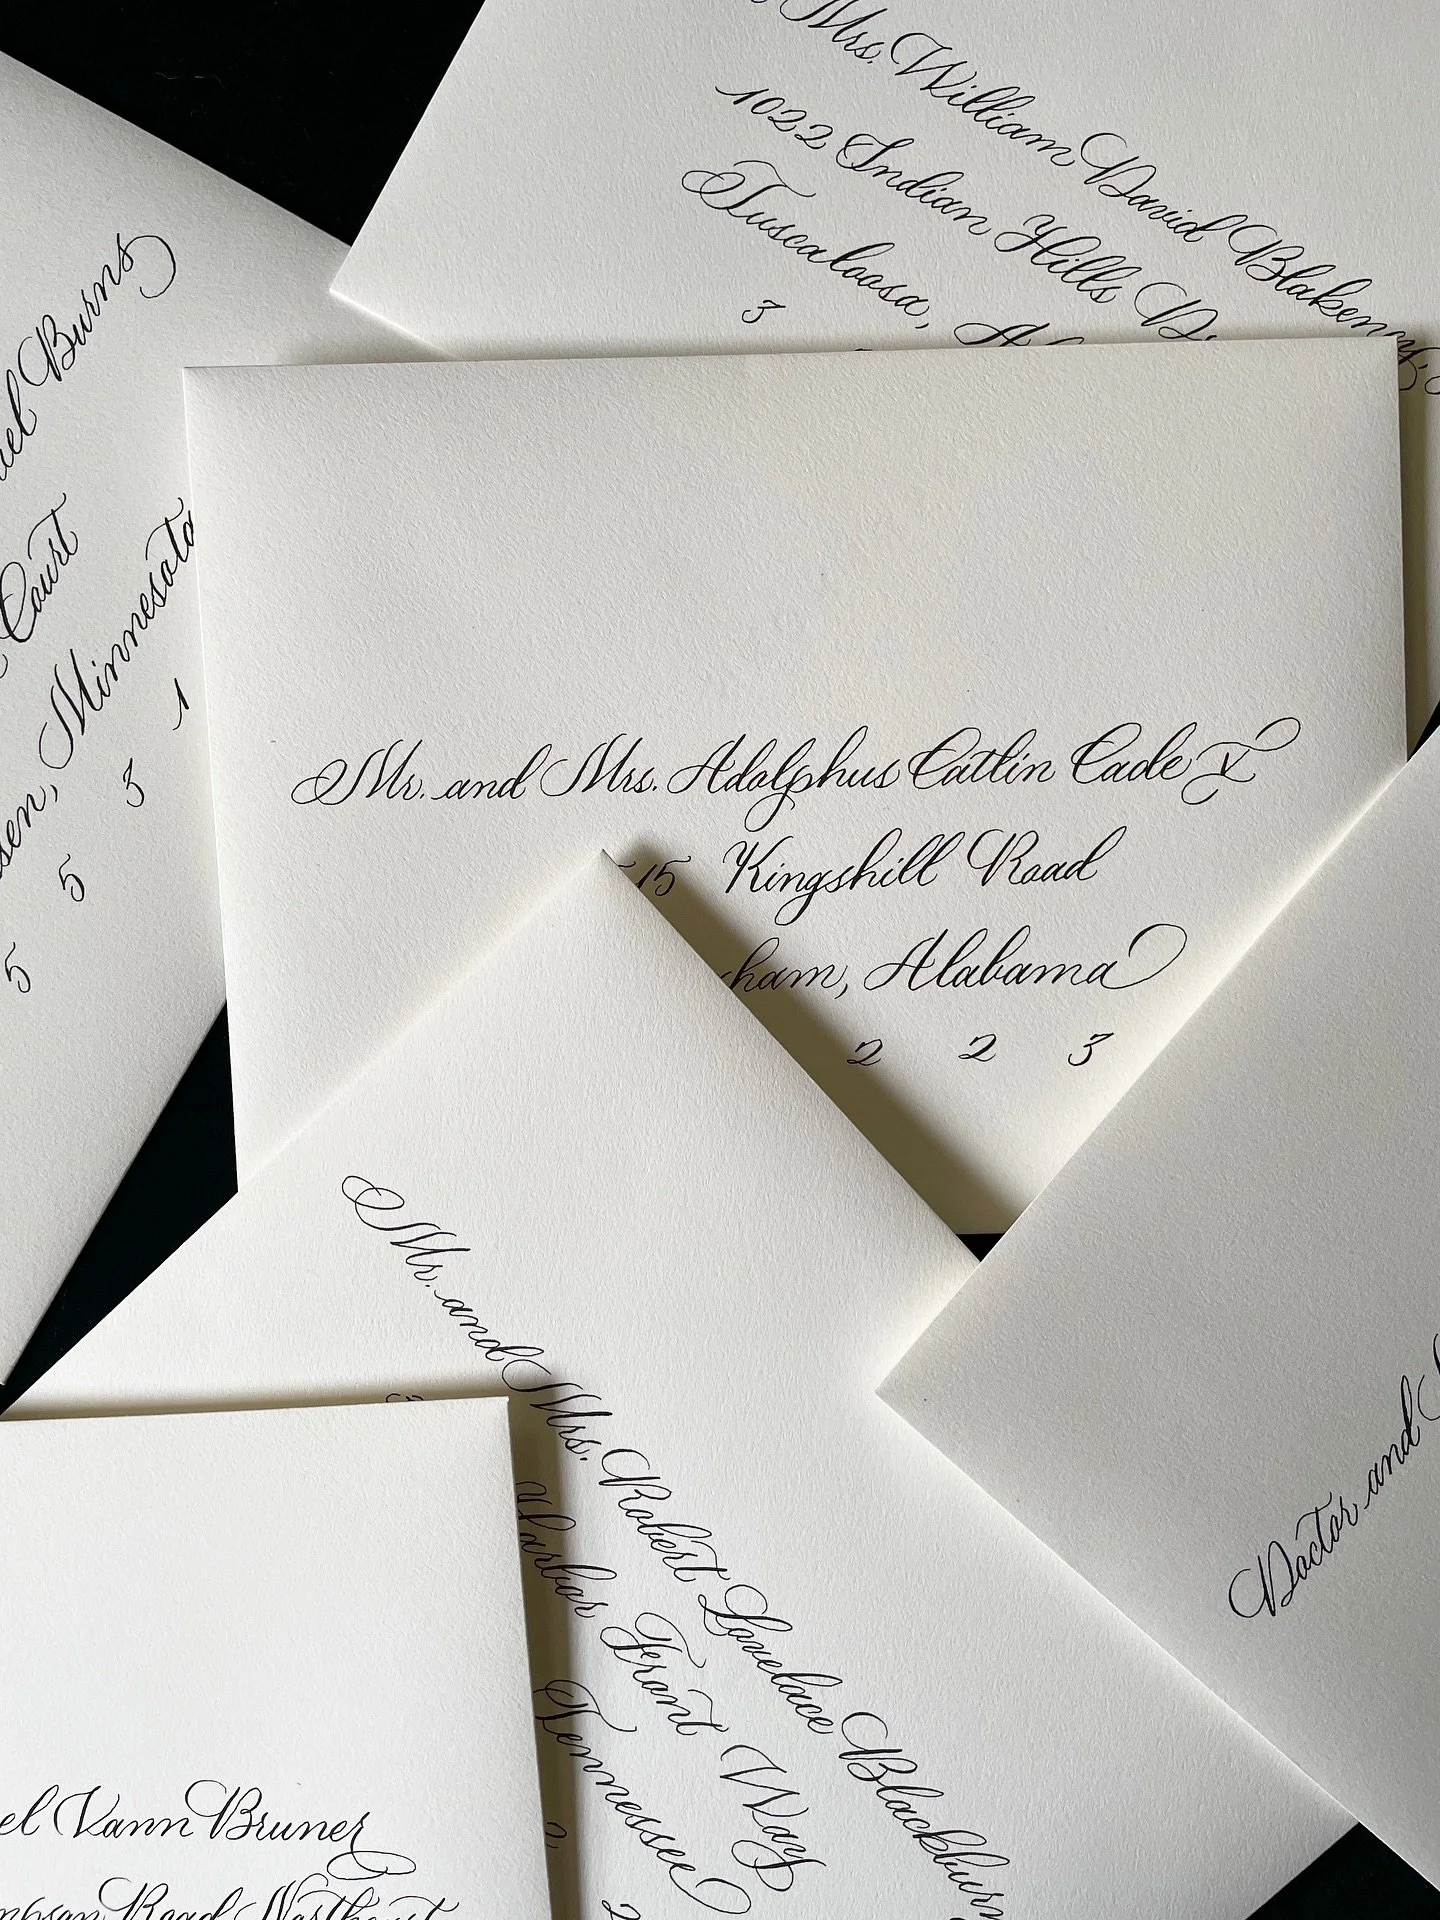 Mrs. William David Blakeney,
1022 Indian Hills
Tuscaloosa,
3
Burns
Court
Minnesota
5 5 3 1
Mr. and Mrs. Adolphus Catlin Cade V
15 Kingshill Road
Alabama
2 2 3
Mr. and Mrs. Robert Lovelace Blackburn
Harbor Front Way
Tennessee
2
Doctor and
Vann Bruner
Road Northeast